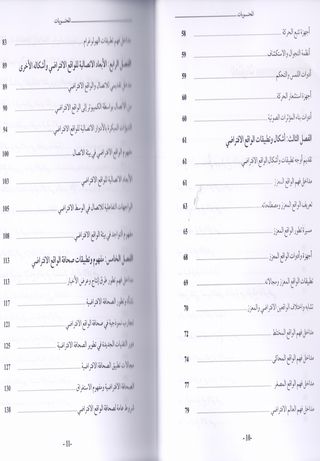 المحتويات
أجهزة تتبع الحركة 58
أنظمة التجوال والاستكشاف 59
أدوات اللمس والتحكم 59
أجهزة استشعار الحركة 60
أدوات بناء المؤثرات الصوتية 60
الفصل الثالث: أشكال وتطبيقات الواقع الافتراضي 61
تقديم أوجه تطبيقات وأشكال الواقع الافتراضي 61
مداخل فهم الواقع المعزز 61
تعريف الواقع المعزز ومصطلحاته 63
مسيرة تطور الواقع المعزز 65
أجهزة وأدوات الواقع المعزز 68
تطبيقات الواقع المعزز ومجالاته 69
تشابه واختلاف الواقعين الافتراضي والمعزز 70
مداخل فهم الواقع المختلط 72
مداخل فهم الواقع المحاكى 74
مداخل فهم الواقع المصغر 77
مفهوم العالم الافتراضي 79
-10-
المحتويات
مداخل فهم تطبيقات الهولوغرام 83
الفصل الرابع: الأبعاد الاتصالية للواقع الافتراضي وأشكاله الأخرى 89
مدخل تقديمي للاتصال والواقع الافتراضي 89
من الاتصال بواسطة الكمبيوتر إلى الواقع الافتراضي 90
التنبؤات المبكرة بالأدوار الاتصالية للواقع الافتراضي 94
مفهوم الواقع الافتراضي في بيئة الاتصال 100
الأبعاد الاتصالية للواقع الافتراضي 103
الواجهات التفاعلية للاتصال في الوسط الافتراضي 105
مفهوم التواجد في بيئة الواقع الافتراضي 108
الفصل الخامس: مفهوم وتطبيقات صحافة الواقع الافتراضي 113
مداخل فهم تطور طرق إنتاج وعرض الأخبار 113
نشأة وتطور الصحافة الافتراضية 117
تجارب نموذجية في صحافة الواقع الافتراضي 121
دور التقنيات الجديدة في تطوير الصحافة الافتراضية 125
مجالات تطبيق الصحافة الافتراضية 127
الصحافة الافتراضية ومفهوم الاستغراق 130
شروط عامة لصحافة الواقع الافتراضي 138
-11-